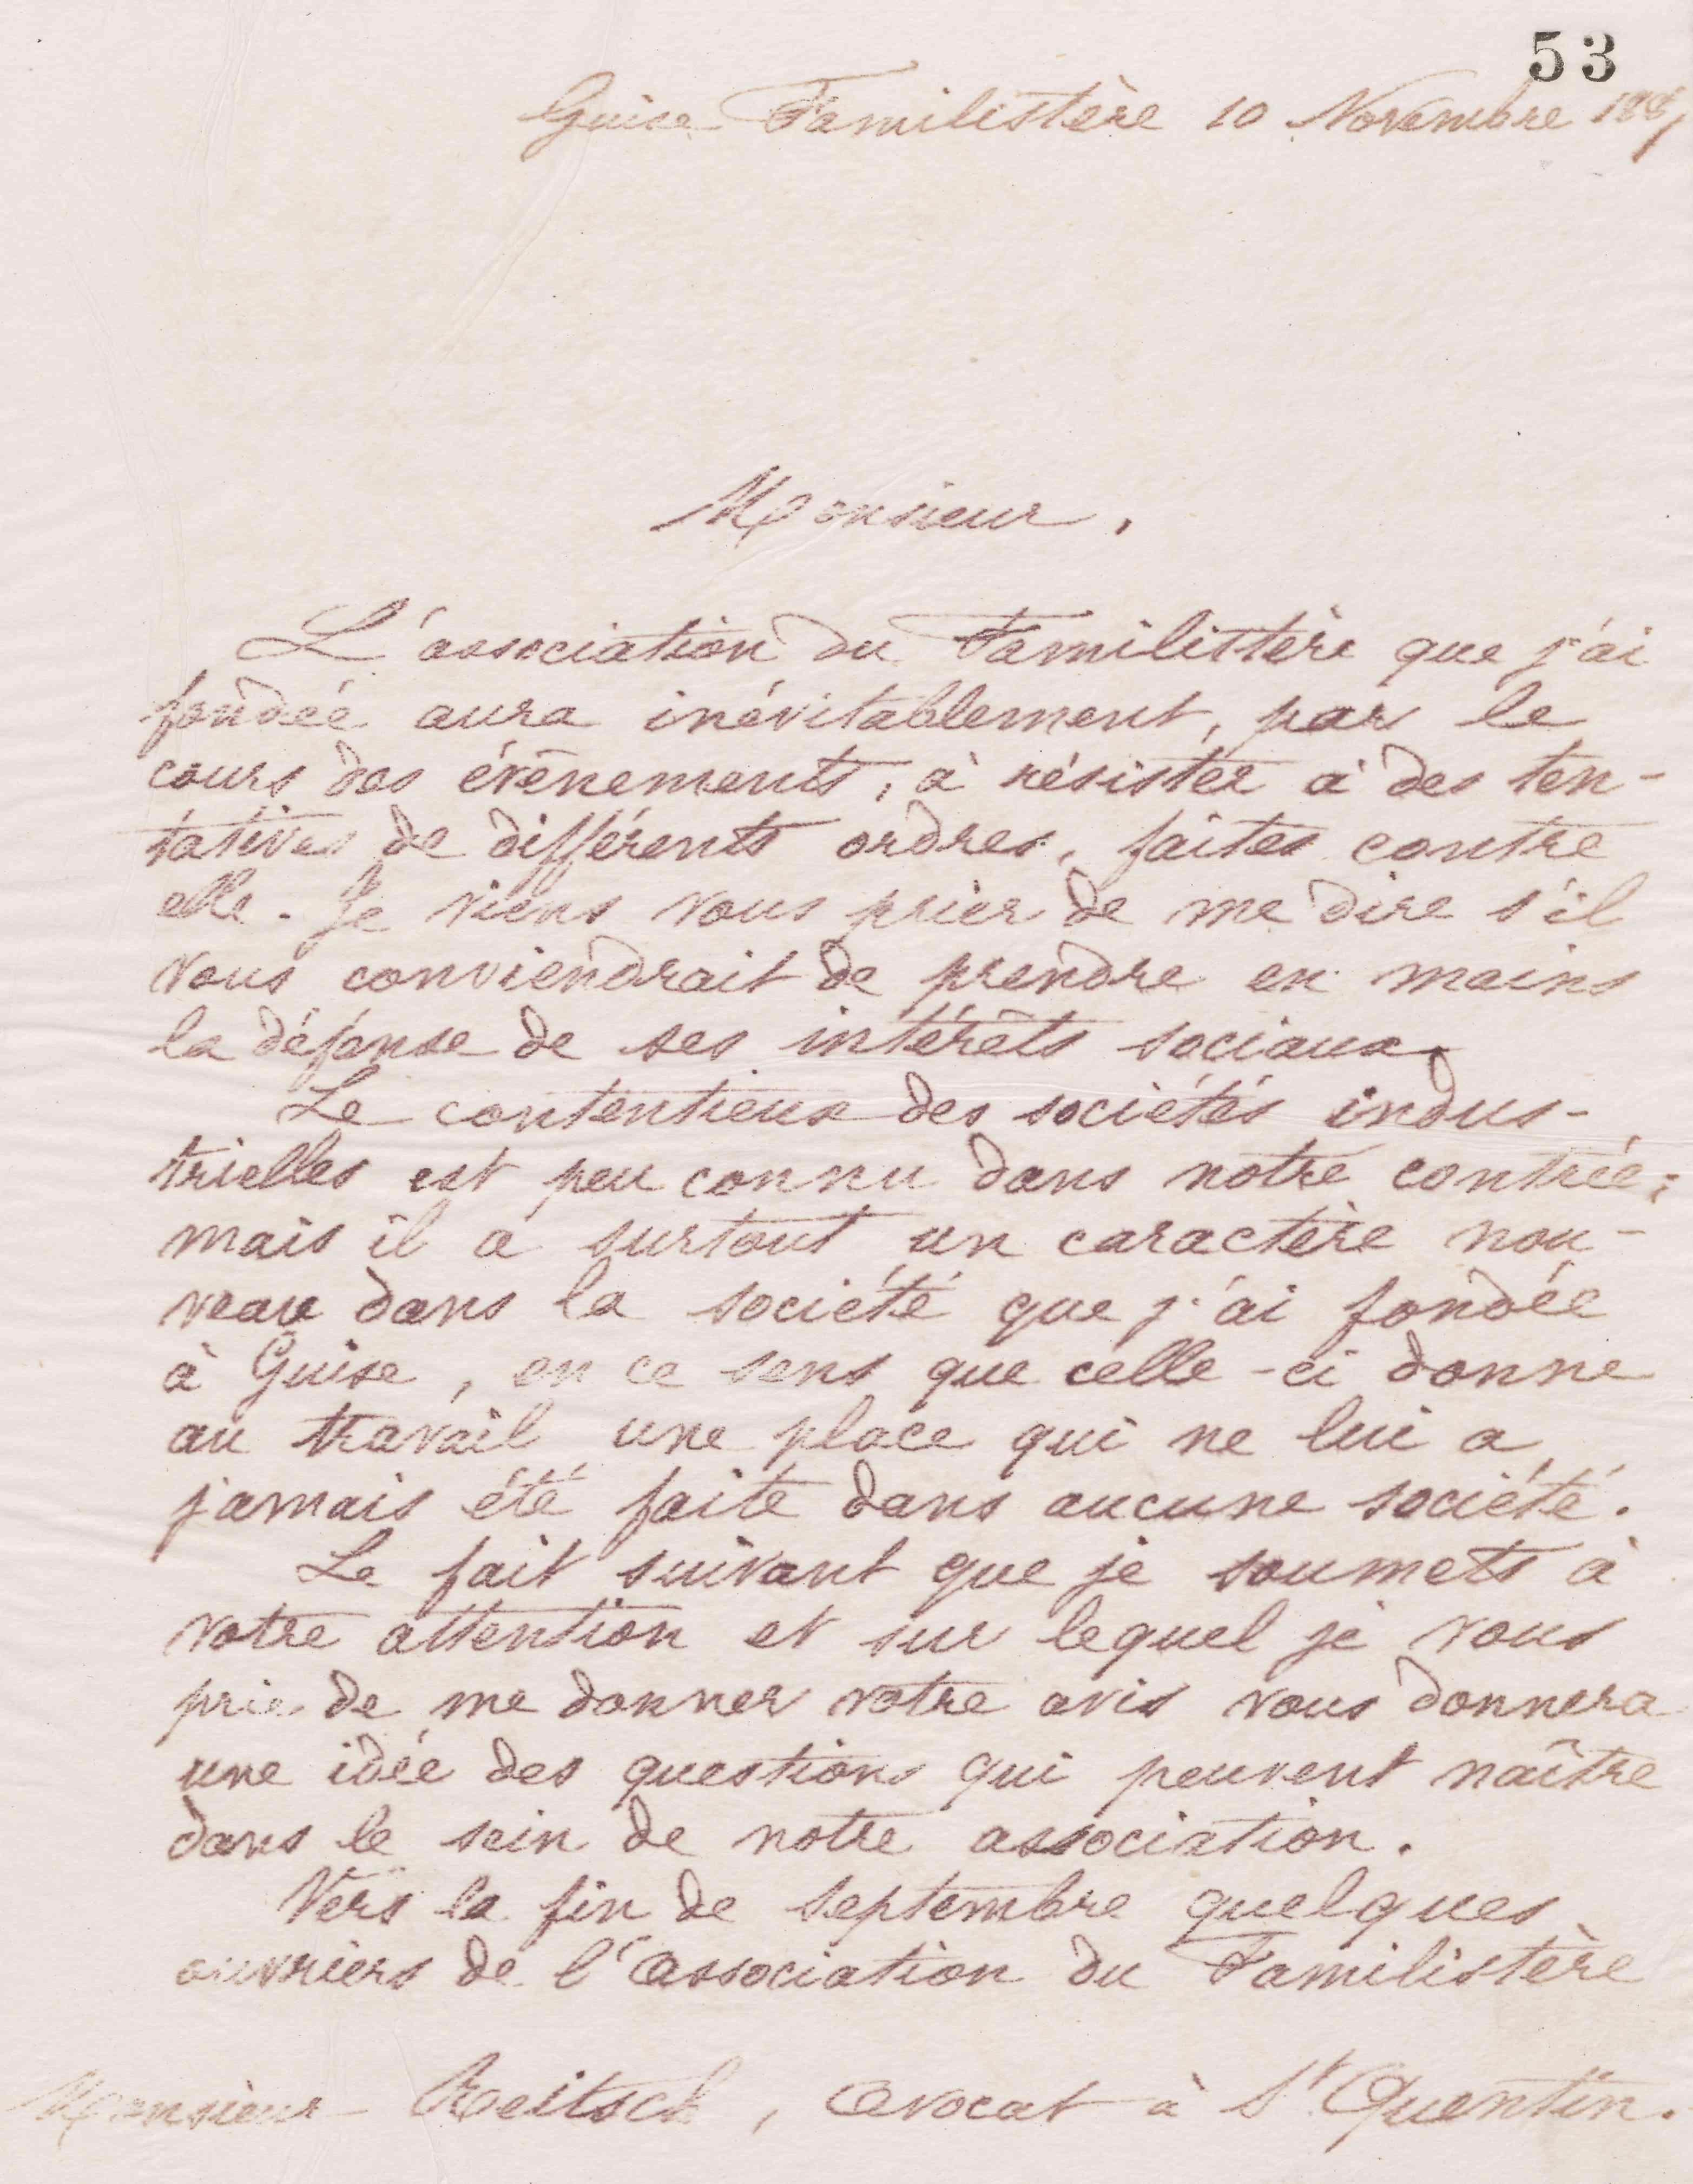 53
Guise Familistère 10 Novembre
Monsieur,
L'association du Familistère que j'ai
fondée aura inévitablement, par le
cours des évènements, à résister à des ten-
tatives de différents ordres, faites contre
elle. Je viens vous prier de me dire s'il
vous conviendrait de prendre en mains
la défense de ses intérêts sociaux.
Le contentieux des sociétés indus-
trielles est peu connu dans notre contrée;
mais il a surtout un caractère nou-
veau dans la société que j'ai fondée
à Guise, en ce sens que celle-ci donne
au travail une place qui ne lui a
jamais été faite dans aucune société.
Le fait suivant que je soumets à
votre attention et sur lequel je vous
prie de me donner votre avis vous donnera
une idée des questions qui peuvent naître
dans le sein de notre association.
Vers la fin de septembre quelques
ouvriers de l'association du Familistère
Monsieur Reitsch, avocat à St Quentin.